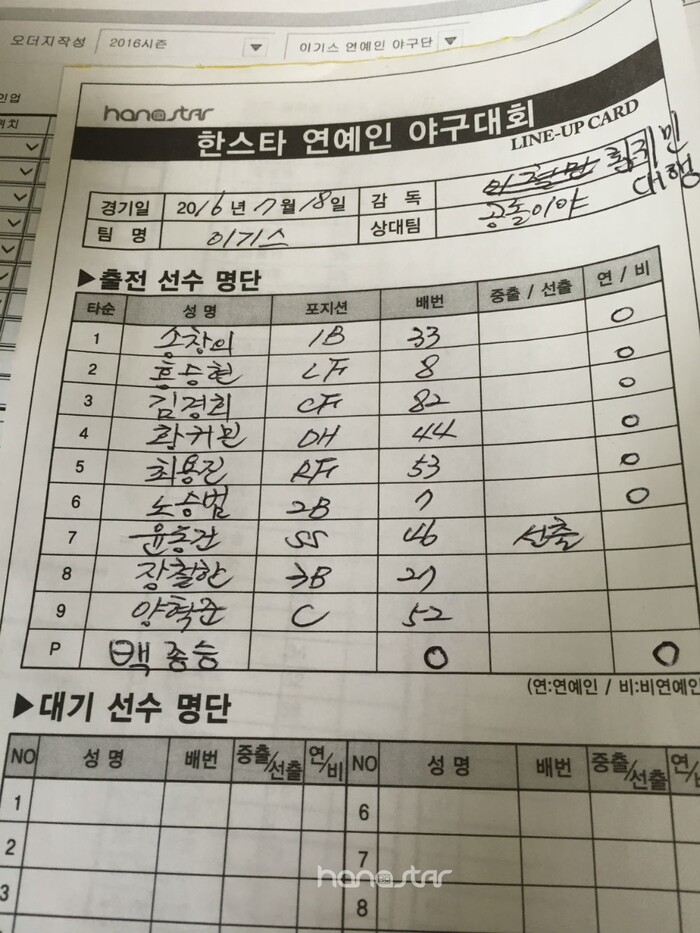 오더지작성 2016시즌 이기스 연예인 야구단
인업
위치
hanostar
한스타 연예인 야구대회
LINE-UP CARD
경기일 2016년 7월 18일 감 독 대행
팀 명 이기스 상대팀 공놀이야
▶출전 선수 명단
타순 성 명 포지션 배번 중출 / 선출 연 / 비
1 송창의 1B 33 O
2 홍승현 LF 8 O
3 김경회 CF 82 O
4 DH 44 O
5 최용진 RF 53 O
6 노승범 2B 7 O
7 SS 46 선출
8 장철한 3B 27
9 양학준 C 52
P 백종승 0 O
(연:연예인 / 비:비연예인
▶대기 선수 명단
NO 성 명 배번 중출/선출 연/비 NO 성 명 배번 중출/선출 연/
1 6
2 7
3 8
hanostar